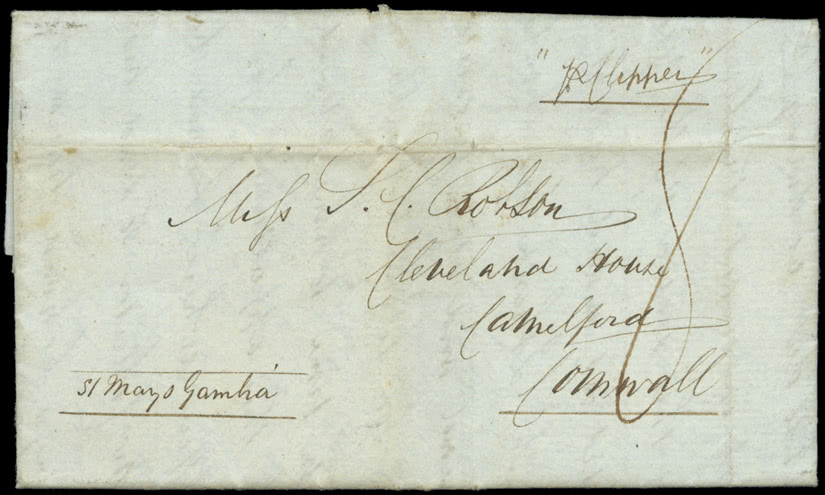 "pr Clipper"
Miss S. C. Robson
Cleveland House
Camelford
Cornwall
St Marys Gambia